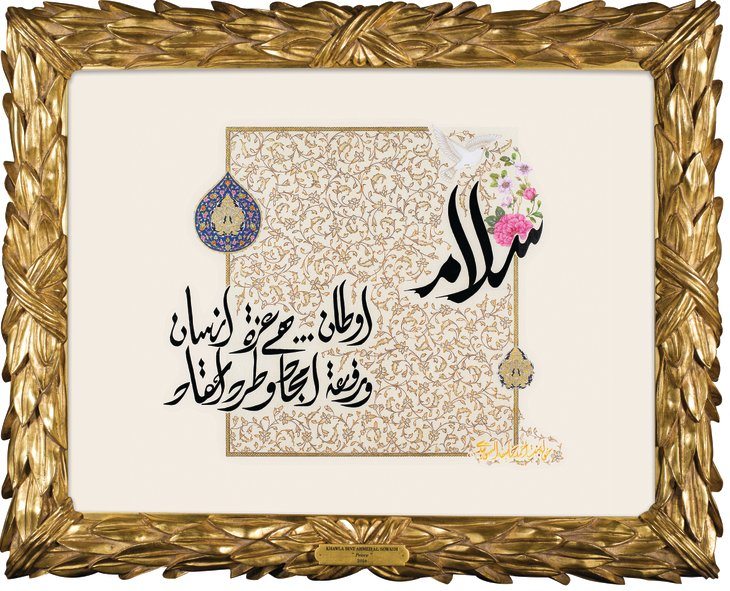 سلام
اوطان ... هي عزة انسان
ورفعة امجاد وطرد احقاد
KHAWLA BINT AHMED AL SOWAIDI
"Peace"